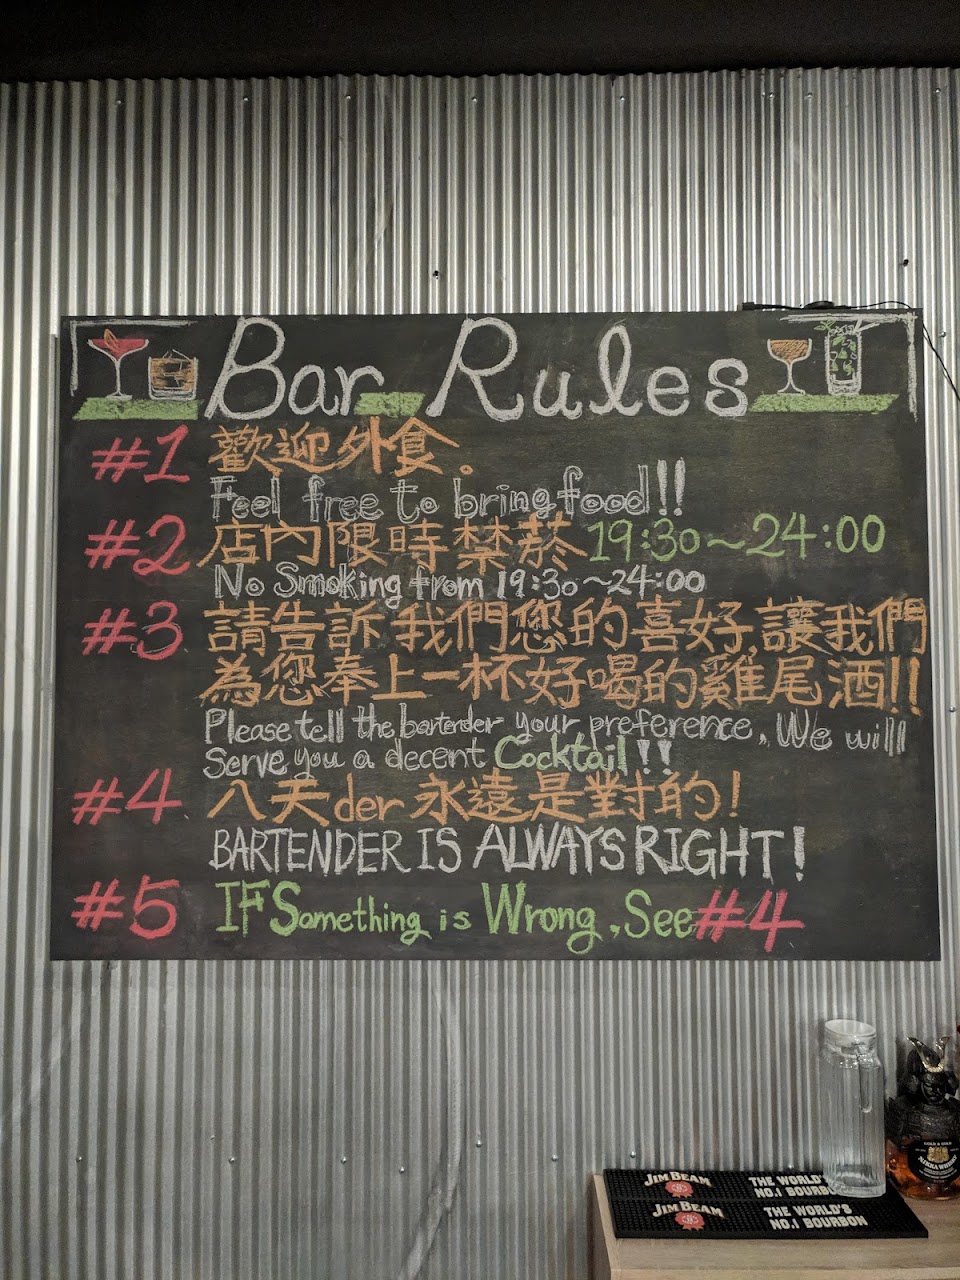 Bar Rules
#1 歡迎外食。
Feel free to bring food!!
#2 店內限時禁菸 19:30~24:00
No Smoking from 19:30~24:00
#3 請告訴我們您的喜好,讓我們
為您奉上一杯好喝的雞尾酒!!
Please tell the bartender your preference, We will
Serve you a decent Cocktail!!
#4 八天der 永遠是對的!
BARTENDER IS ALWAYS RIGHT!
#5 IF Something is Wrong, See #4
GOLD & GOLD
NIKKA WHISKY
JIM BEAM THE WORLD'S
NO.1 BOURBON
JIM BEAM THE WORLD'S
NO.1 BOURBON